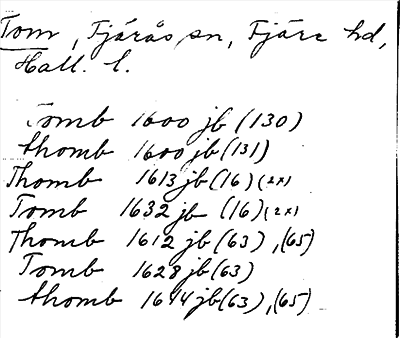 Tom, Fjärås sn, Fjäre hd,
Hall. l.
Tomb 1600 jb (130)
thomb 1600 jb (131)
Thomb 1613 jb (16) (2x)
Tomb 1632 jb (16) (2x)
Thomb 1612 jb (63), (65)
Tomb 1628 jb (63)
thomb 1644 jb (63), (65)